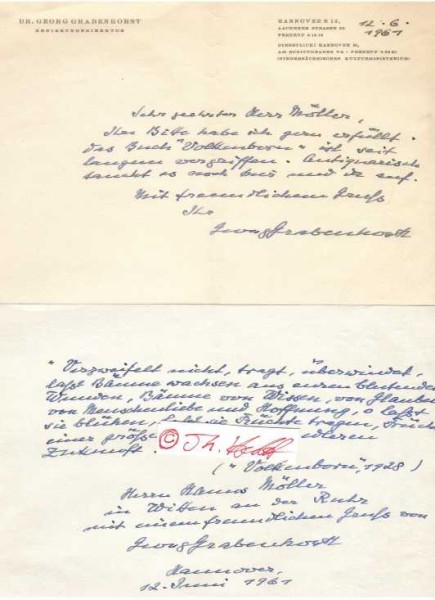 DR. GEORG GRABENHORST
REGIERUNGSDIREKTOR
HANNOVER N 15,
12. 6.
1961
Sehr geehrter Herr Möller,
Ihre Bitte habe ich gern erfüllt.
das Buch "Volkenborn" ist seit
langem vergriffen. Antiquarisch
taucht es noch hin und da auf.
Mit freundlichem Gruß
Ihr
Georg Grabenhorst
"Verzweifelt nicht, tragt, überwindet,
laßt Bäume wachsen aus euren blutenden
Wunden, Bäume von Wissen, von Glauben
von Menschenliebe und Hoffnung, o laßt
sie blühen, laßt sie Früchte tragen, Früchte
einer größe
edleren
Zukunft."
© Th.
("Volkenborn", 1928)
Herrn Hanns Möller
in Witten an der Ruhr
mit einem freundlichen Gruß von
Georg Grabenhorst
Hannover,
12. Juni 1961